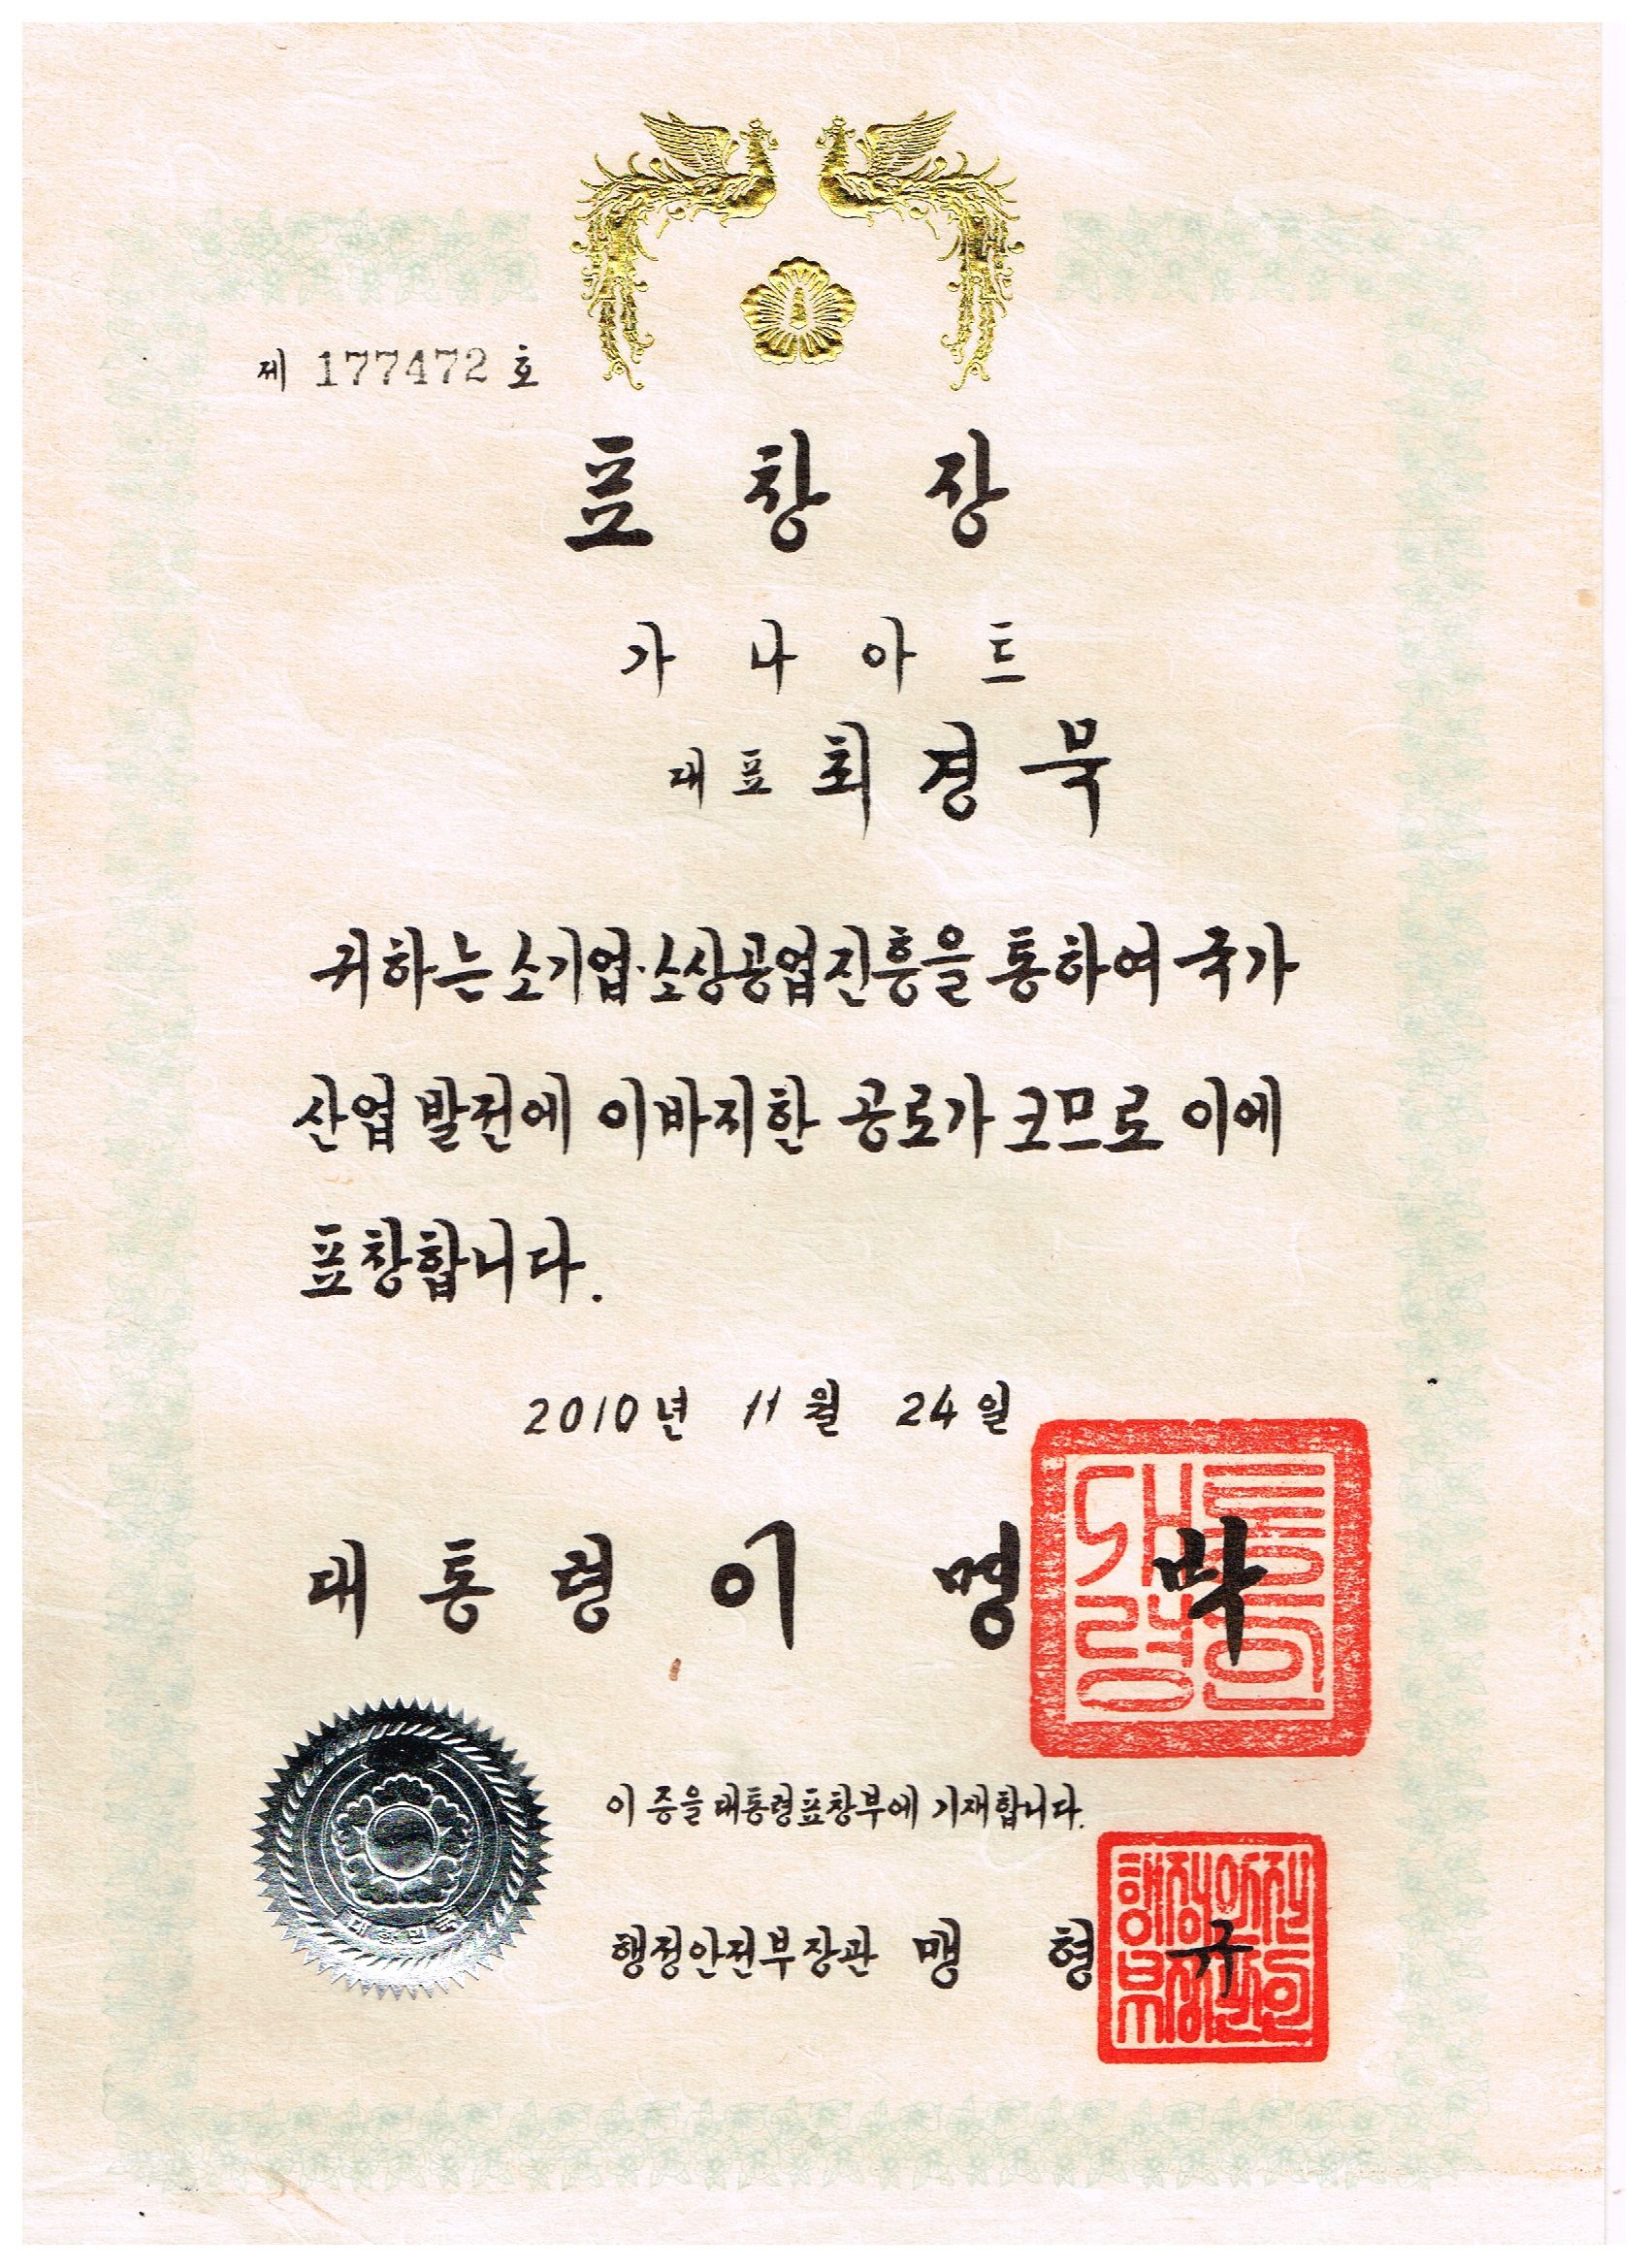 제 177472 호
표 창 장
가 나 아 트
대표 최 경 묵
귀하는 소기업·소상공업진흥을 통하여 국가
산업 발전에 이바지한 공로가 크므로 이에
표창합니다.
2010년 11월 24일
대 통 령 이 명 박
대통령인
이 증을 대통령표창부에 기재합니다.
행정안전부장관 맹 형 규
행정안전부장관인
대한민국